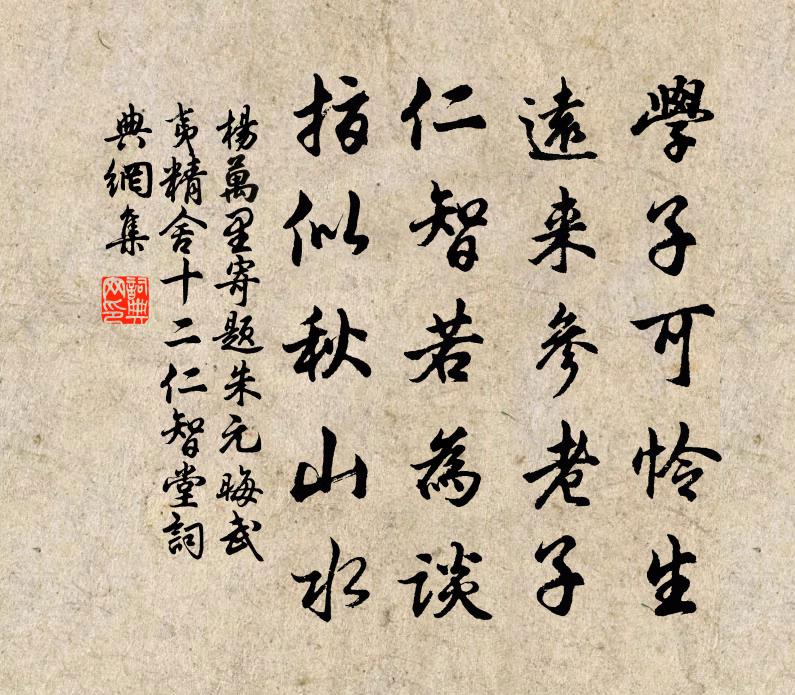 學子可怜生
遠来參老子
仁智若為談
指似秋山水
楊萬里寄題朱元晦武
夷精舍十二仁智堂詞
典網集
詞典網印